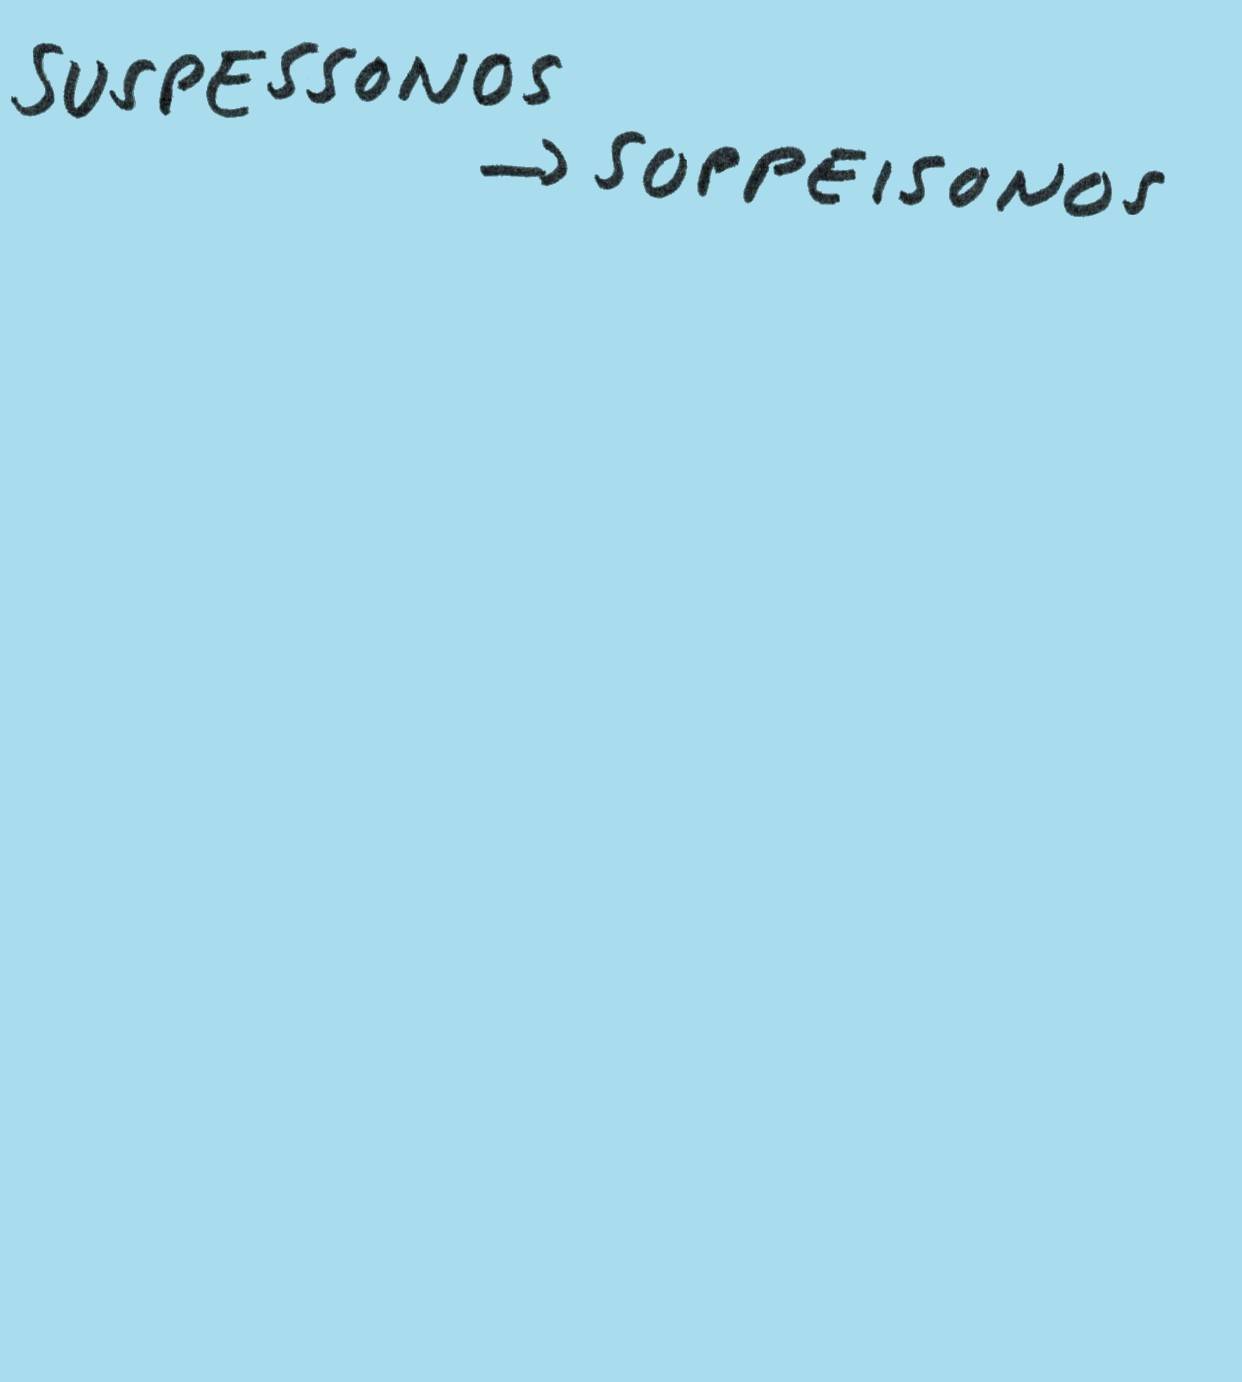 SUSPESSONOS
→ SOPPEISONOS